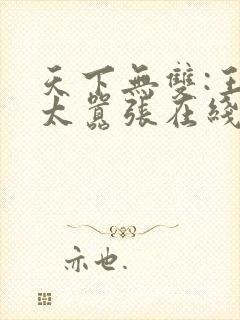 天下無雙:王
太囂張在綫
亦也.